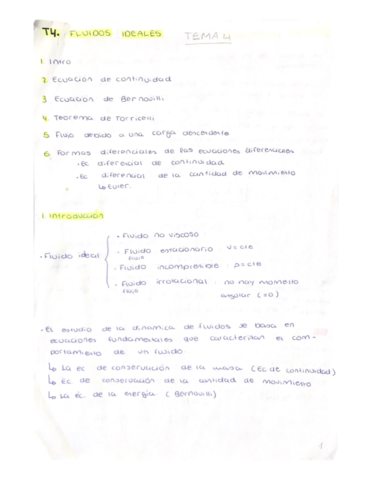 T4. FLUIDOS IDEALES TEMA 4
1. Intro
2. Ecuación de continuidad
3. Ecuación de Bernouilli
4. Teorema de Torricelli
5. Flujo debido a una carga descendente
6. Formas diferenciales de las ecuaciones diferenciales
• Ec diferencial de continuidad
• Ec diferencial de la cantidad de movimiento
↳ Euler.
1. Introducción
• Fluido ideal
• Fluido no viscoso
• Fluido estacionario v=cte
• Fluido incompresible ρ=cte
• Fluido irrotacional no hay momento
angular (=0)
• El estudio de la dinámica de fluidos se basa en
ecuaciones fundamentales que caracterizan el com-
portamiento de un fluido.
↳ La ec de conservación de la masa (Ec de continuidad)
↳ Ec. de conservación de la cantidad de movimiento
↳ La ec. de la energía (Bernouilli)